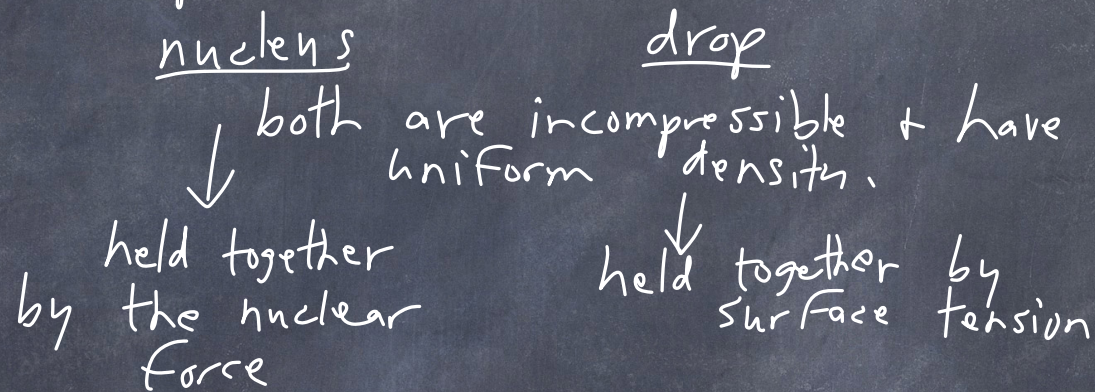 nucleus drop
both are incompressible + have
uniform density.
held together
by the nuclear
force
held together by
surface tension